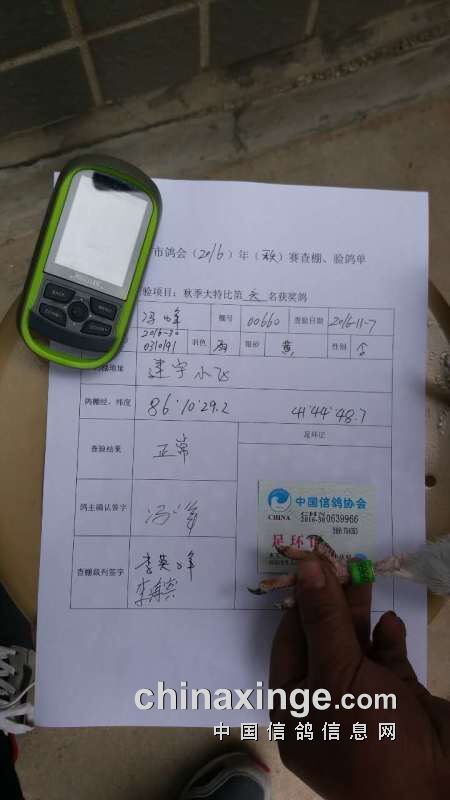 市鸽会（2016）年（秋）赛查棚、验鸽单
验项目：秋季大特比第 名获奖鸽
冯 棚号 00660 查验日期 2016-11-7
2016-30
0310191 羽色 雨 眼砂 黄 性别
地址 建宇小
鸽棚经、纬度 86°10'29.2 41°44'48.7
查验结果 正常 足环证
鸽主确认签字 冯
查棚裁判签字 李英峰
李
中国信鸽协会
CHINA CHN
2016-30 0639966
足环
BACK
MENU
chinaxinge.com
中国信鸽信息网